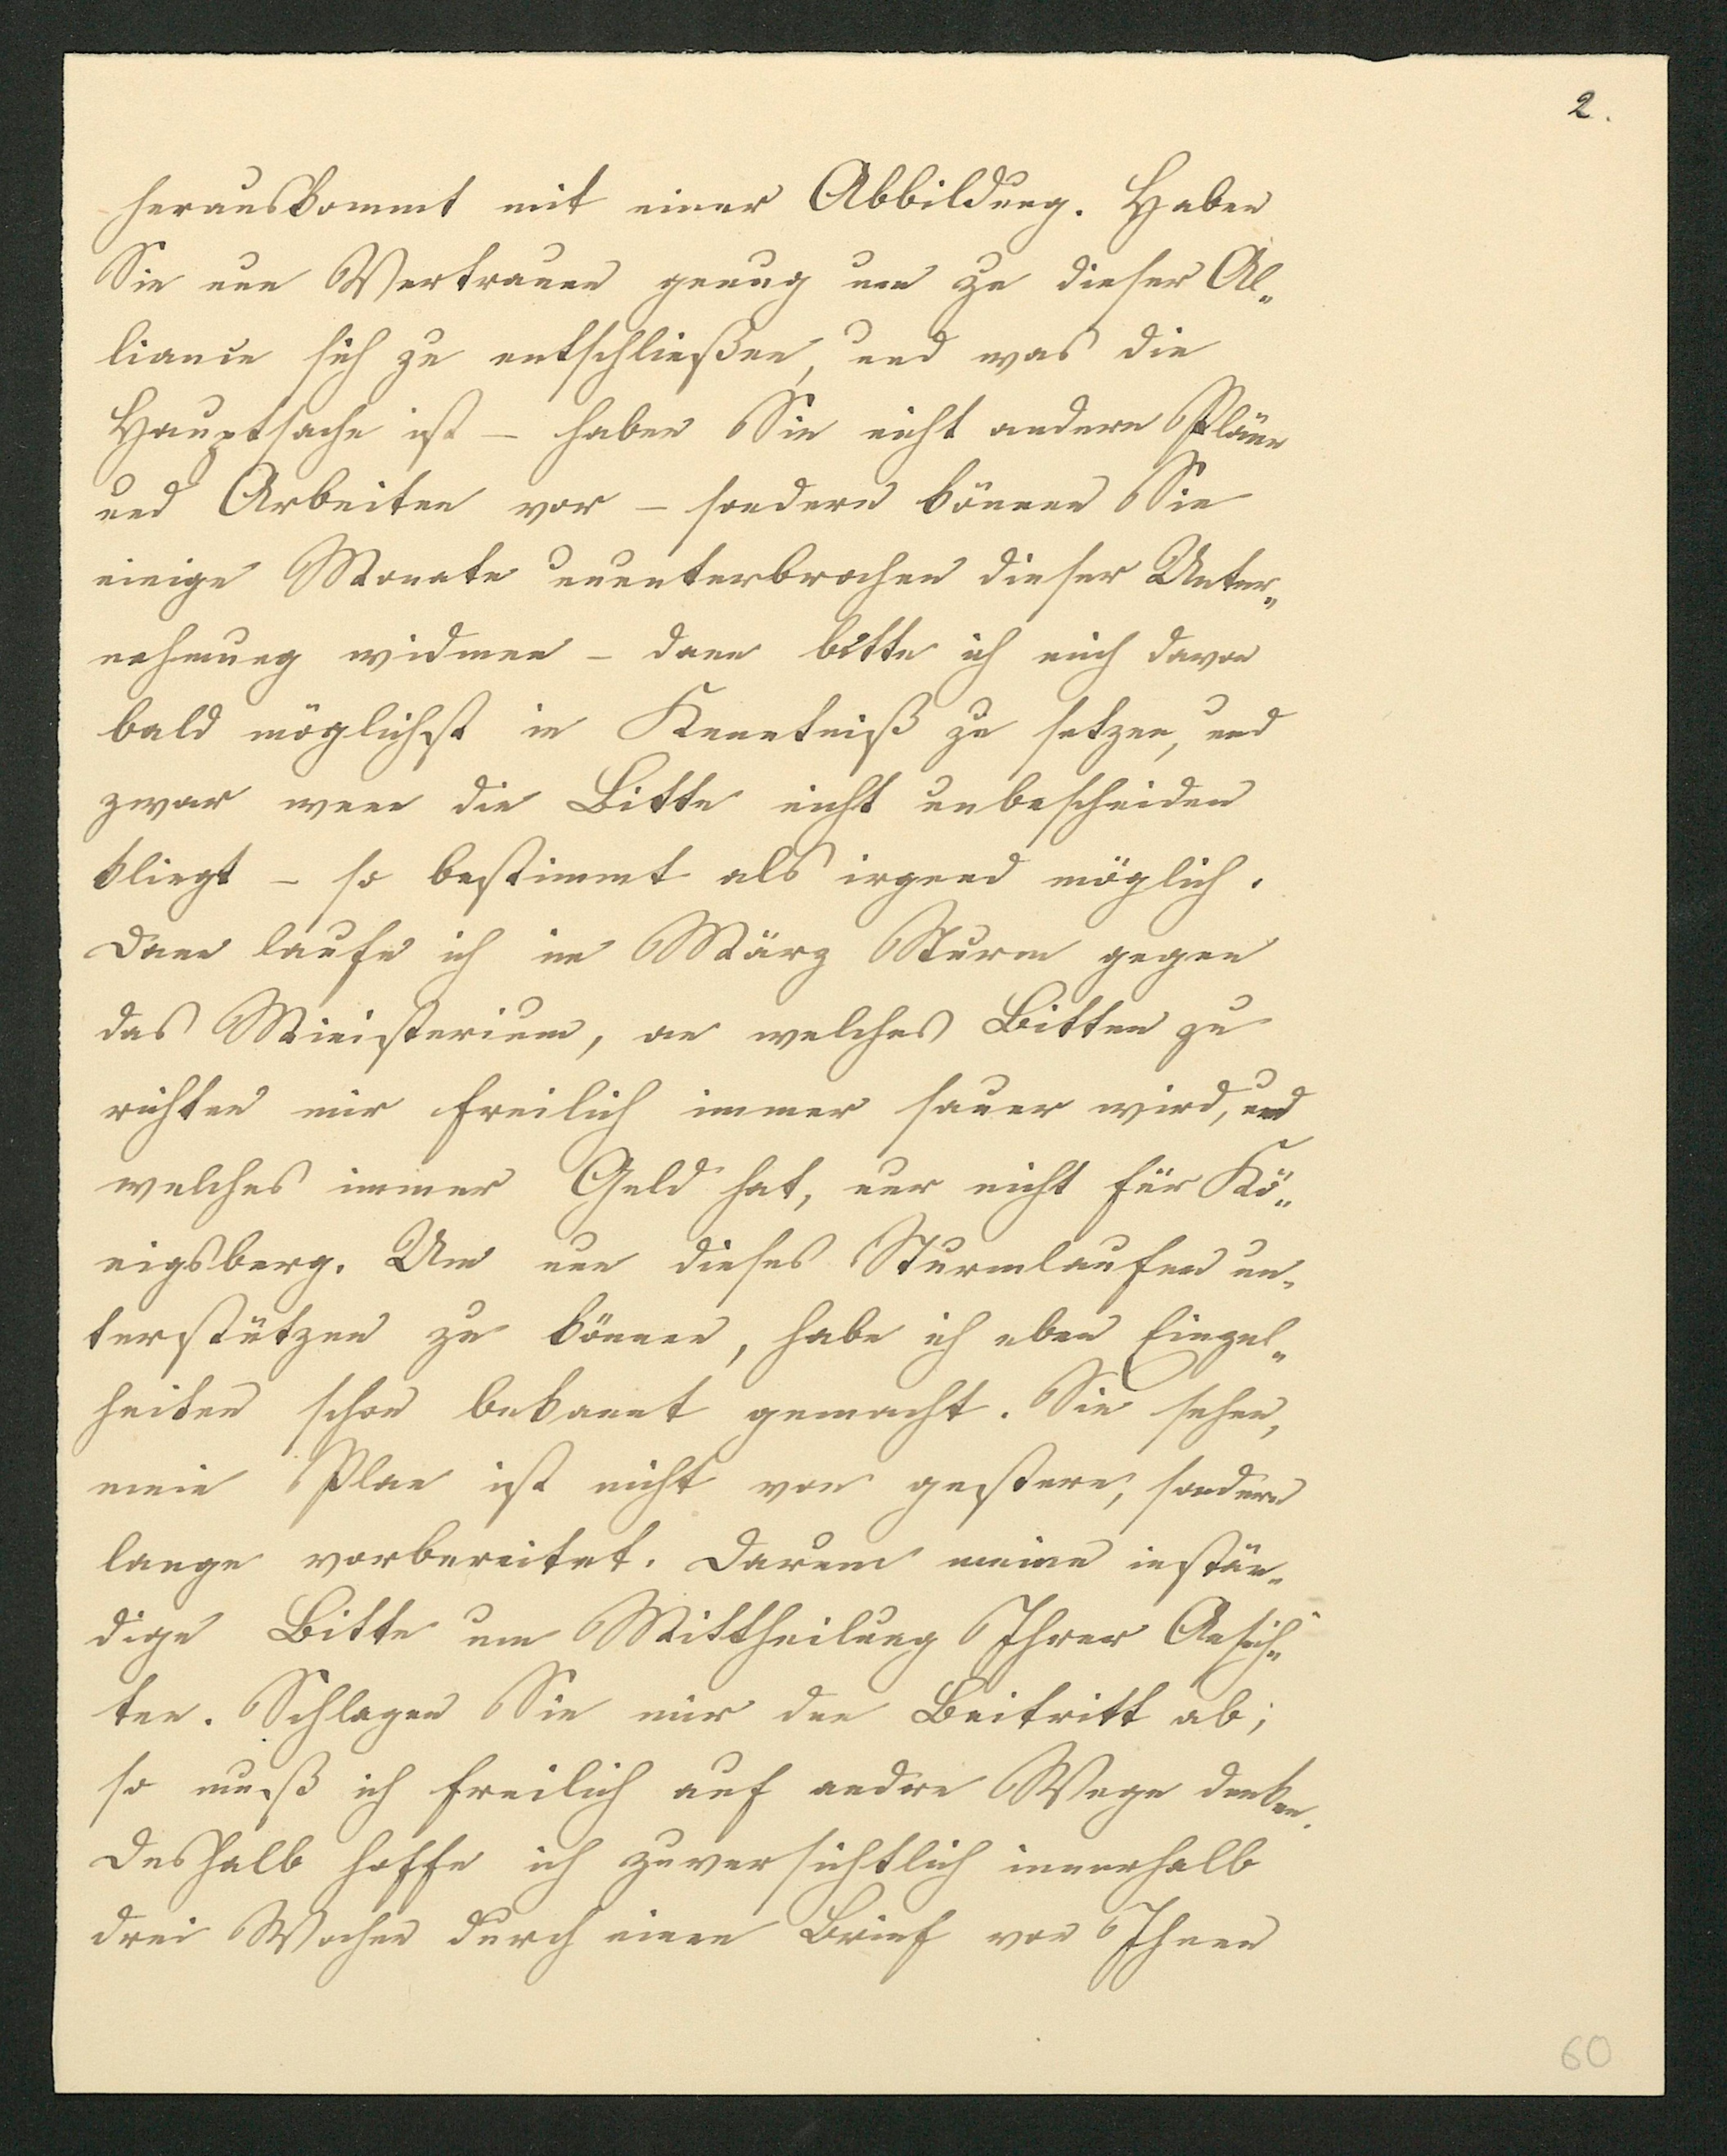 2.
herauskommt mit einer Abbildung. Haben
Sie nun Vertrauen genug um zu dieser Al„
liance sich zu entschließen, und was die
Hauptsache ist – haben Sie nicht andere Pläne
und Arbeiten vor – sondern können Sie
einige Monate ununterbrochen dieser Unter„
nehmung widmen – dann bitte ich mich davon
bald möglichst in Kenntniß zu setzen, und
zwar wenn die Bitte nicht unbescheiden
klingt – so bestimmt als irgend möglich.
Dann laufe ich im März Sturm gegen
das Ministerium, an welches Bitten zu
richten mir freilich immer sauer wird, und
welches immer Geld hat, nur nicht für Kö„
nigsberg. Um nun dieses Sturmlaufen un„
terstützen zu können, habe ich eben Einzel„
heiten schon bekannt gemacht. Sie sehen,
mein Plan ist nicht von gestern, sondern
lange vorbereitet. Darum meine instän„
dige Bitte um Mittheilung Ihrer Ansich„
ten. Schlagen Sie mir den Beitritt ab;
so muß ich freilich auf andre Wege denken.
Deshalb hoffe ich zuversichtlich innerhalb
drei Wochen durch einen Brief von Ihnen
60